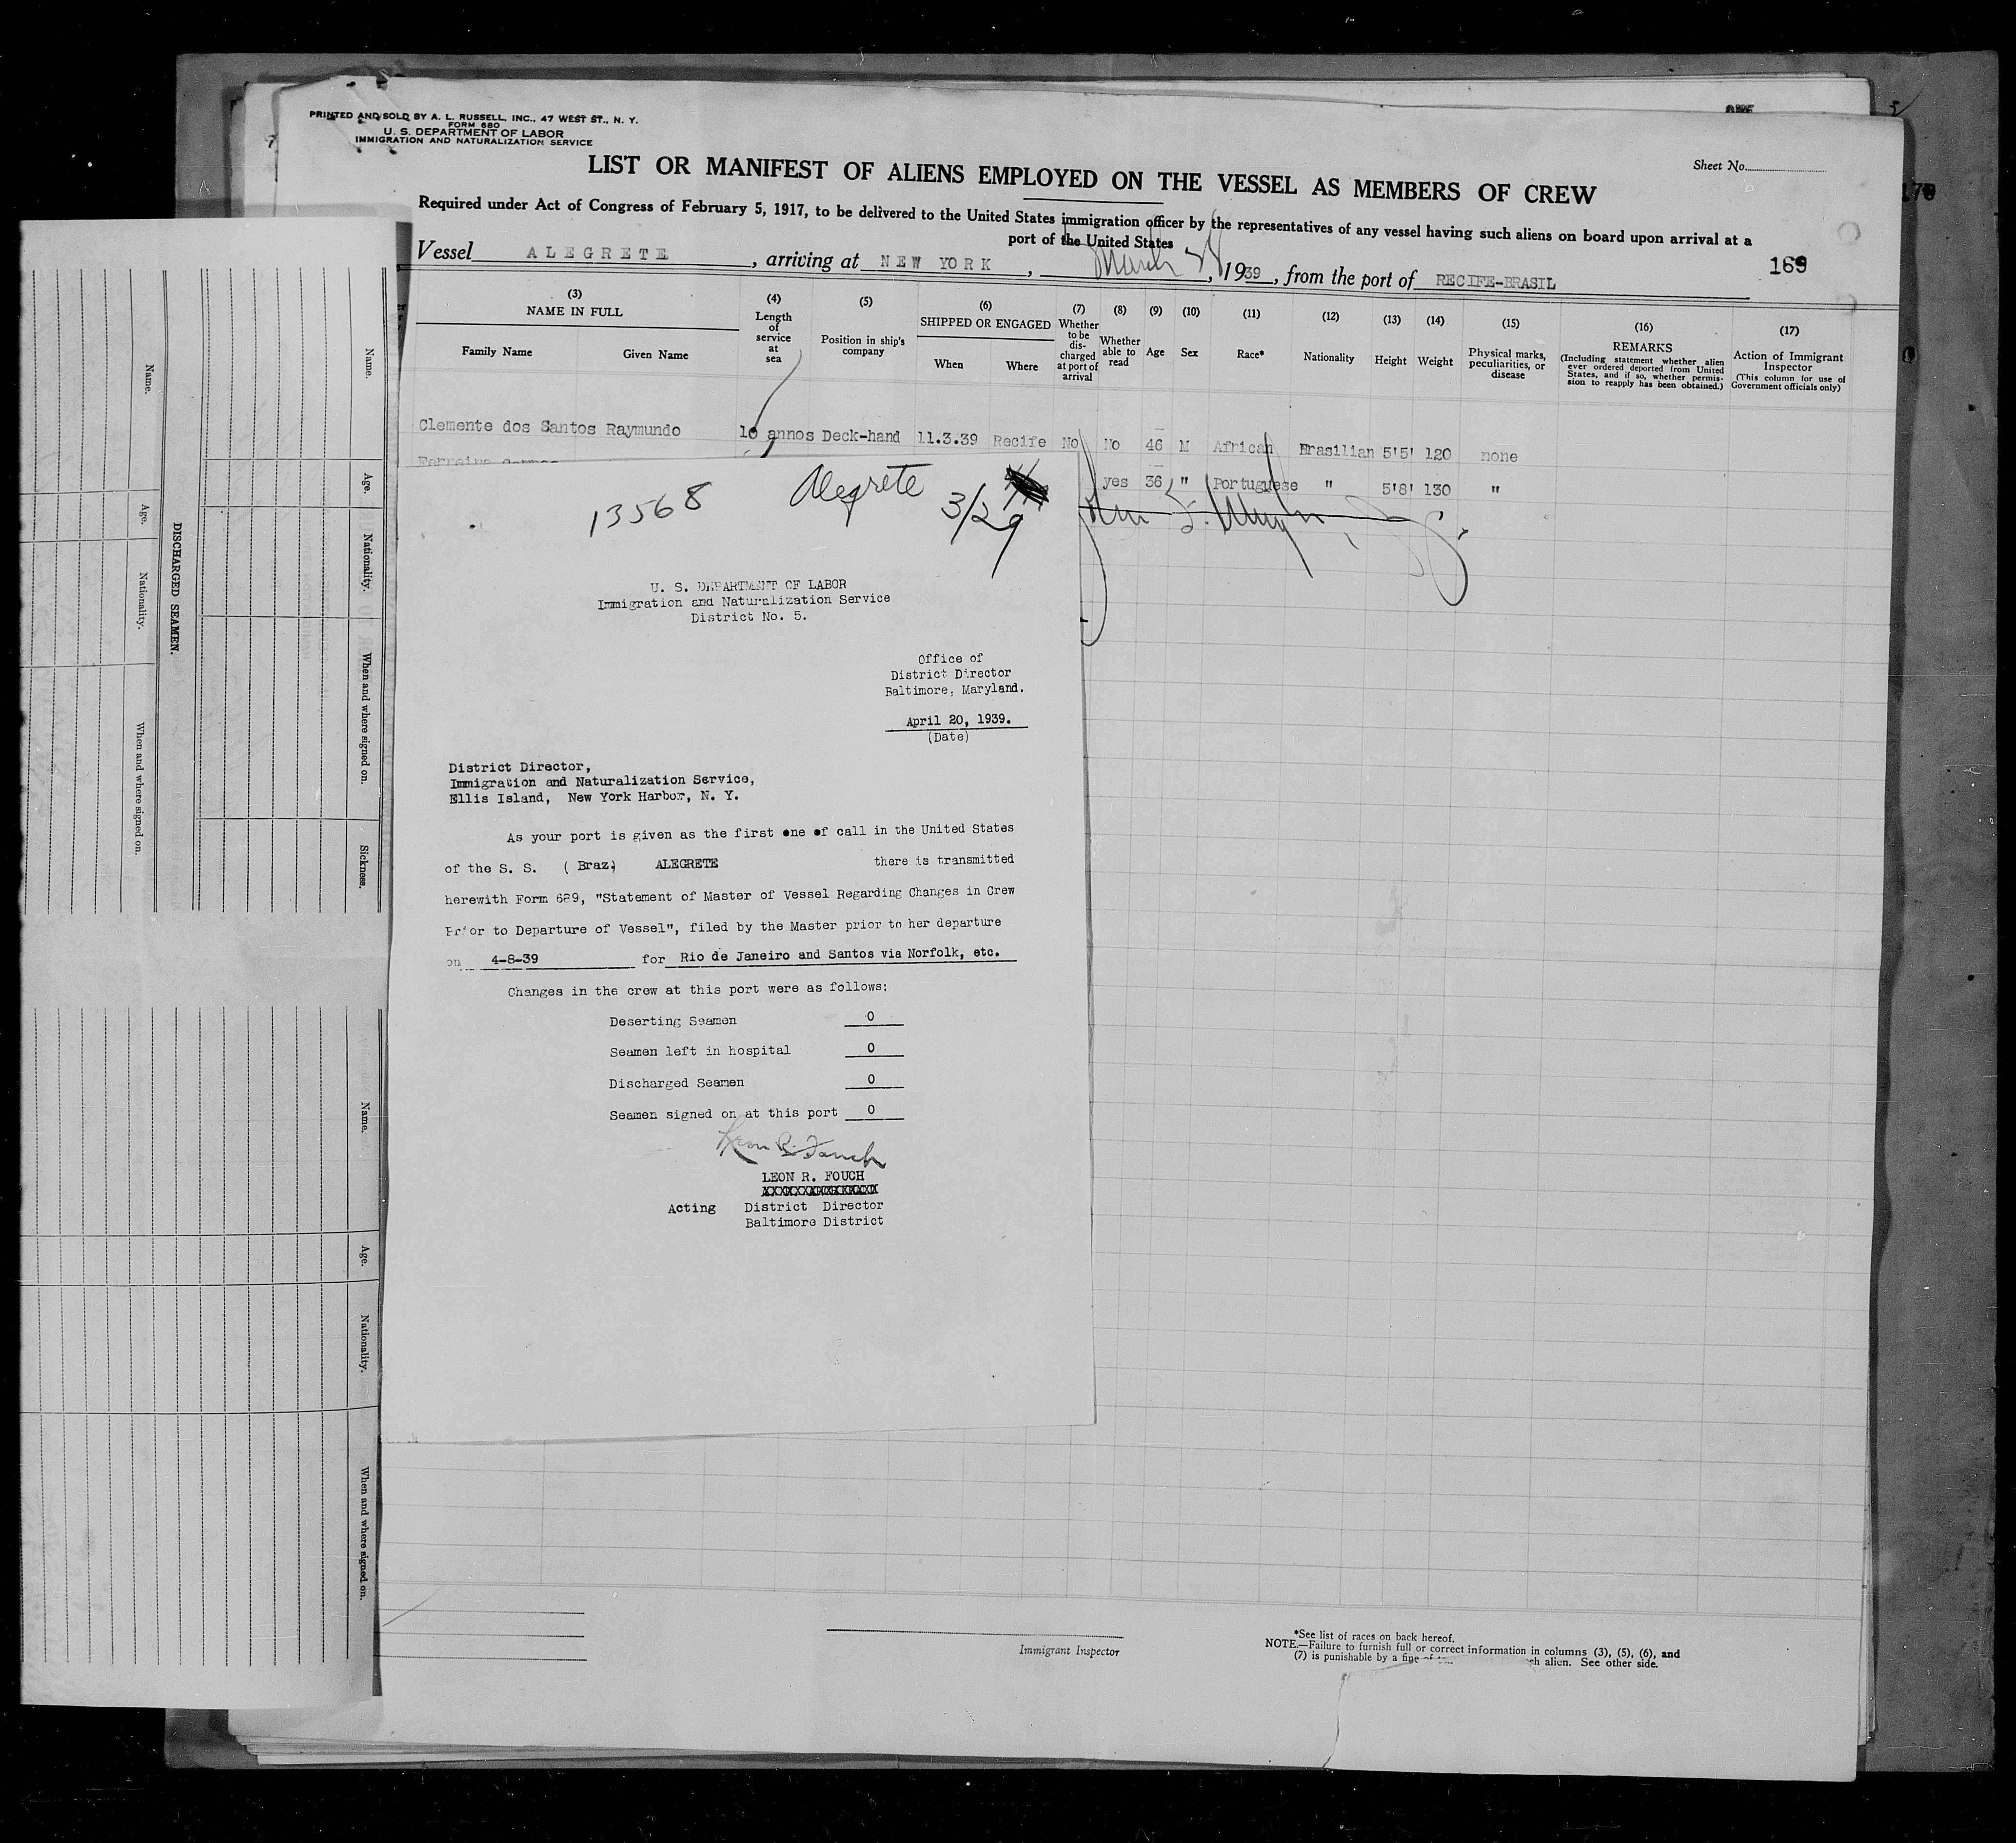 PRINTED AND SOLD BY A. L. RUSSELL, INC., 47 WEST ST., N. Y.
FORM 680
U. S. DEPARTMENT OF LABOR
IMMIGRATION AND NATURALIZATION SERVICE
Sheet No.
LIST OR MANIFEST OF ALIENS EMPLOYED ON THE VESSEL AS MEMBERS OF CREW
Required under Act of Congress of February 5, 1917, to be delivered to the United States immigration officer by the representatives of any vessel having such aliens on board upon arrival at a
port of the United States
Vessel ALEGRETE, arriving at NEW YORK, March, 1939, from the port of RECIFE-BRASIL
169
(3) NAME IN FULL
Family Name Given Name
(4) Length of service at sea
(5) Position in ship's company
(6) SHIPPED OR ENGAGED
When Where
(7) Whether to be discharged at port of arrival
(8) Whether able to read
(9) Age
(10) Sex
(11) Race*
(12) Nationality
(13) Height
(14) Weight
(15) Physical marks, peculiarities, or disease
(16) REMARKS
(Including statement whether alien ever ordered deported from United States, and if so, whether permission to reapply has been obtained.)
(17) Action of Immigrant Inspector
(This column for use of Government officials only)
Clemente dos Santos Raymundo 10 annos Deck-hand 11.3.39 Recife No No 46 M African Brasilian 5'5' 120 none
Ferreira
yes 36 " Portuguese " 5'8' 130 "
13568 Alegrete 3/29
U. S. DEPARTMENT OF LABOR
Immigration and Naturalization Service
District No. 5.
Office of
District Director
Baltimore, Maryland.
April 20, 1939.
(Date)
District Director,
Immigration and Naturalization Service,
Ellis Island, New York Harbor, N. Y.
As your port is given as the first one of call in the United States
of the S. S. ( Braz) ALEGRETE there is transmitted
herewith Form 689, "Statement of Master of Vessel Regarding Changes in Crew
Prior to Departure of Vessel", filed by the Master prior to her departure
on 4-8-39 for Rio de Janeiro and Santos via Norfolk, etc.
Changes in the crew at this port were as follows:
Deserting Seamen 0
Seamen left in hospital 0
Discharged Seamen 0
Seamen signed on at this port 0
Leon R. Fouch
LEON R. FOUCH
Acting District Director
Baltimore District
Immigrant Inspector
*See list of races on back hereof.
NOTE.—Failure to furnish full or correct information in columns (3), (5), (6), and
(7) is punishable by a fine of alien. See other side.
Name.
Age.
Nationality.
When and where signed on.
DISCHARGED SEAMEN.
Name.
Age.
Nationality.
When and where signed on.
Sickness.
Name.
Age.
Nationality.
When and where signed on.